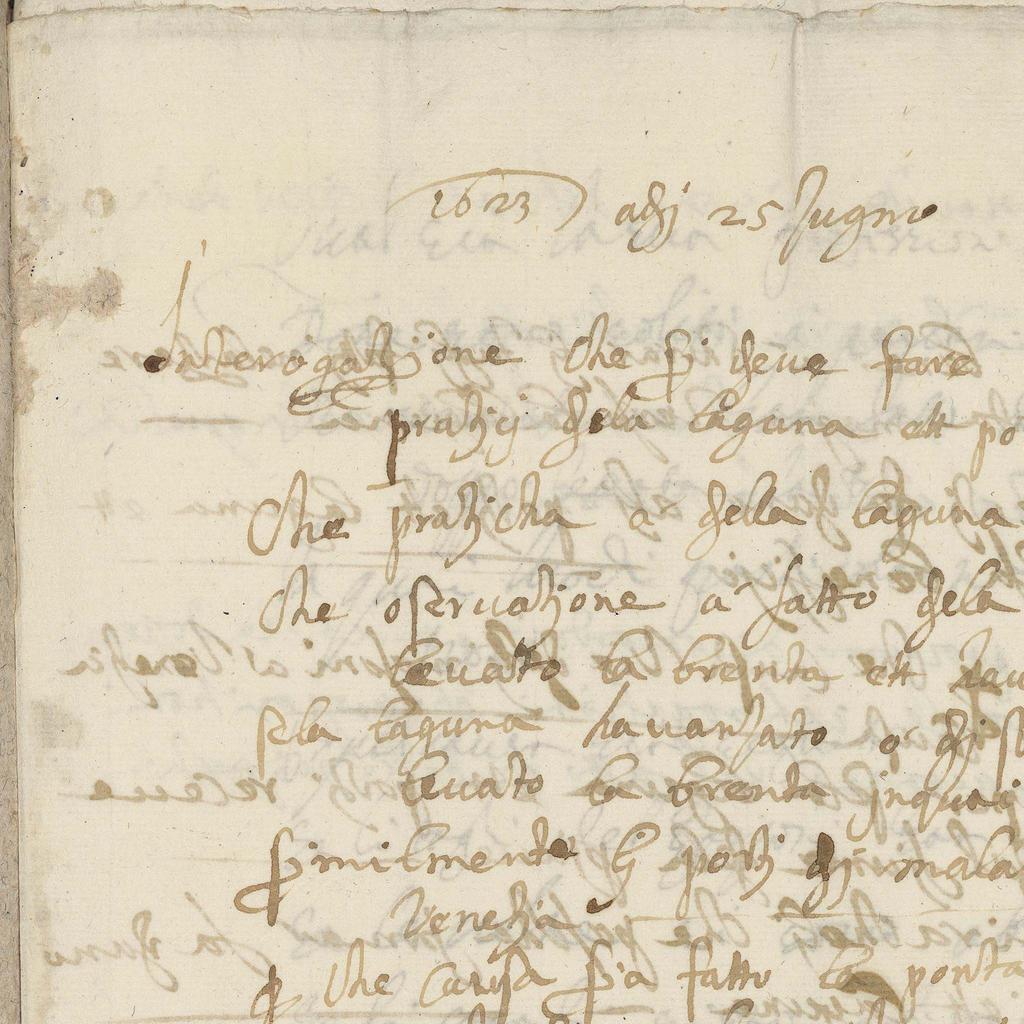 1623 adj 25 Jugno
Interogatzione che si deve fare
pratzicj dela laguna ett po
Che praticha a della laguna
Che oservatzione a fatto dela
levato la brenta ett
sela laguna havanzato o dj
levato la brenta jnquaj
similmente lj portj dj mala
Venetzia
p che causa sia fatto la ponta